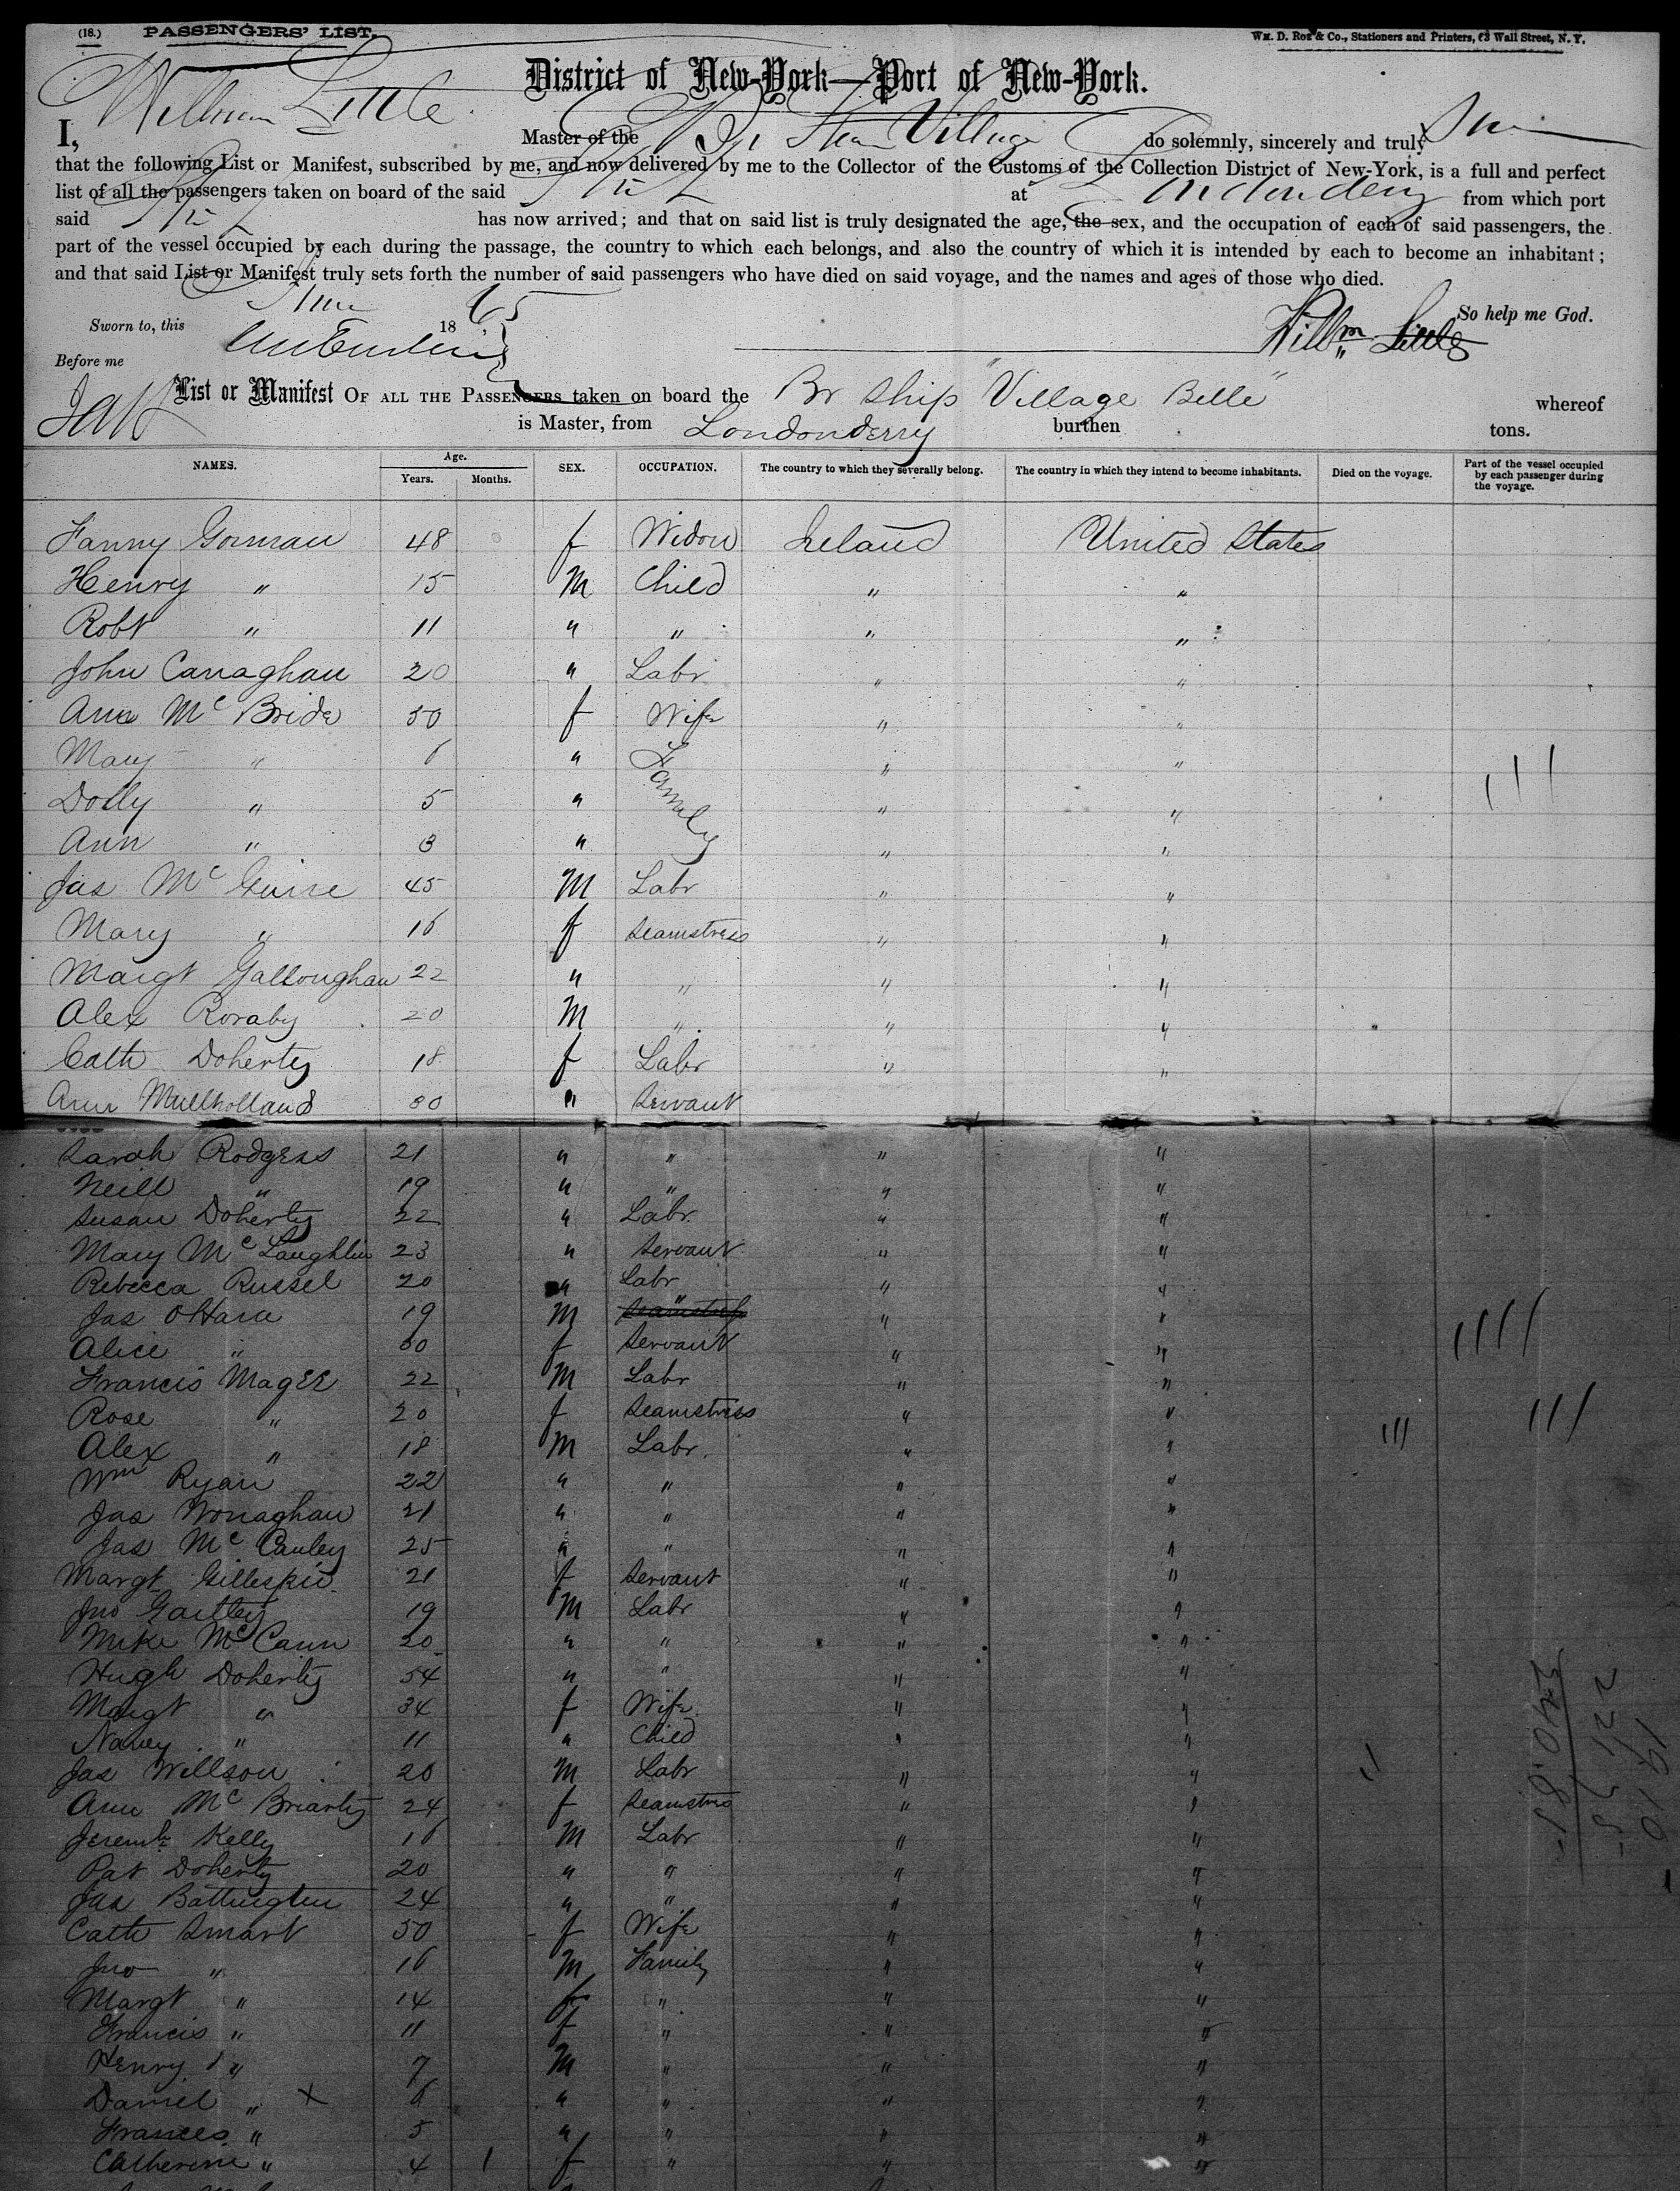 (18.) PASSENGERS' LIST. Wm. D. Roe & Co., Stationers and Printers, 63 Wall Street, N. Y.
District of New-York—Port of New-York.
I, William Little Master of the do solemnly, sincerely and truly
that the following List or Manifest, subscribed by me, and now delivered by me to the Collector of the Customs of the Collection District of New-York, is a full and perfect
list of all the passengers taken on board of the said Ship at Londonderry from which port
said Ship has now arrived; and that on said list is truly designated the age, the sex, and the occupation of each of said passengers, the
part of the vessel occupied by each during the passage, the country to which each belongs, and also the country of which it is intended by each to become an inhabitant;
and that said List or Manifest truly sets forth the number of said passengers who have died on said voyage, and the names and ages of those who died.
So help me God.
Sworn to, this June 1865
Willm Little
Before me
List or Manifest OF ALL THE PASSENGERS taken on board the Br Ship "Village Belle" whereof
is Master, from Londonderry burthen tons.
NAMES. Age. Years. Months. SEX. OCCUPATION. The country to which they severally belong. The country in which they intend to become inhabitants. Died on the voyage. Part of the vessel occupied by each passenger during the voyage.
Fanny Gorman 48 f Widow Ireland United States
Henry " 15 M Child " "
Robt " 11 " " " "
John Canaghan 20 " Labr " "
Ann Mc Bride 30 f Wife " "
Mary " 6 " Family " "
Dolly " 5 " " "
Ann " 3 " " "
Jas Mc Guire 45 M Labr " "
Mary " 16 f Seamstress " "
Margt Galloughan 22 " " " "
Alex Roraby 20 M " " "
Cath Doherty 18 f Labr " "
Ann Mullholland 30 " Servant
Sarah Rodgers 21 " " " "
Neill " 19 " " " "
Susan Doherty 22 " Labr " "
Mary Mc Laughlin 23 " Servant " "
Rebecca Russel 20 " Labr " "
Jas OHara 19 M " " "
Alice " 30 f Servant " "
Francis Magee 22 M Labr " "
Rose " 20 f Seamstress " "
Alex " 18 M Labr " "
Wm Ryan 22 " " " "
Jas Monaghan 21 " " " "
Jas Mc Cauley 25 " " " "
Margt Gillespie 21 f Servant " "
Jno Gartley 19 M Labr " "
Mike McCann 20 " " " "
Hugh Doherty 54 " " " "
Margt " 34 f Wife " "
Nancy " 11 " Child " "
Jas Willson 20 M Labr " "
Ann Mc Briarty 24 f Seamstress " "
Jeremh Kelly 16 M Labr " "
Pat Doherty 20 " " " "
Jas 24 " " " "
Cath Smart 50 f Wife " "
Jno " 16 M Family " "
Margt " 14 f " " "
Francis " 11 f " " "
Henry " 7 M " " "
Daniel " x 6 " " " "
Frances " 5 " " " "
Catherine " 4 1 f " " "